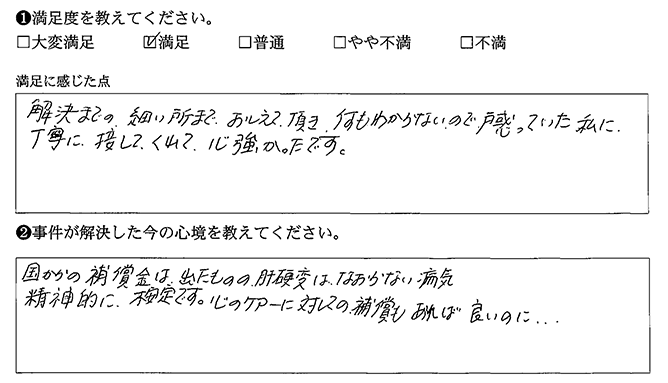 ❶満足度を教えてください。
□大変満足 ☑満足 □普通 □やや不満 □不満
満足に感じた点
解決までの、細い所まで、おしえて、頂き、何もわからないので戸惑っていた私に、
丁寧に、接して、くれて、心強かったです。
❷事件が解決した今の心境を教えてください。
国からの補償金は、出たものの、肝硬変は、なおらない病気
精神的に、不安定です。心のケアーに対しての補償も あれば 良いのに...